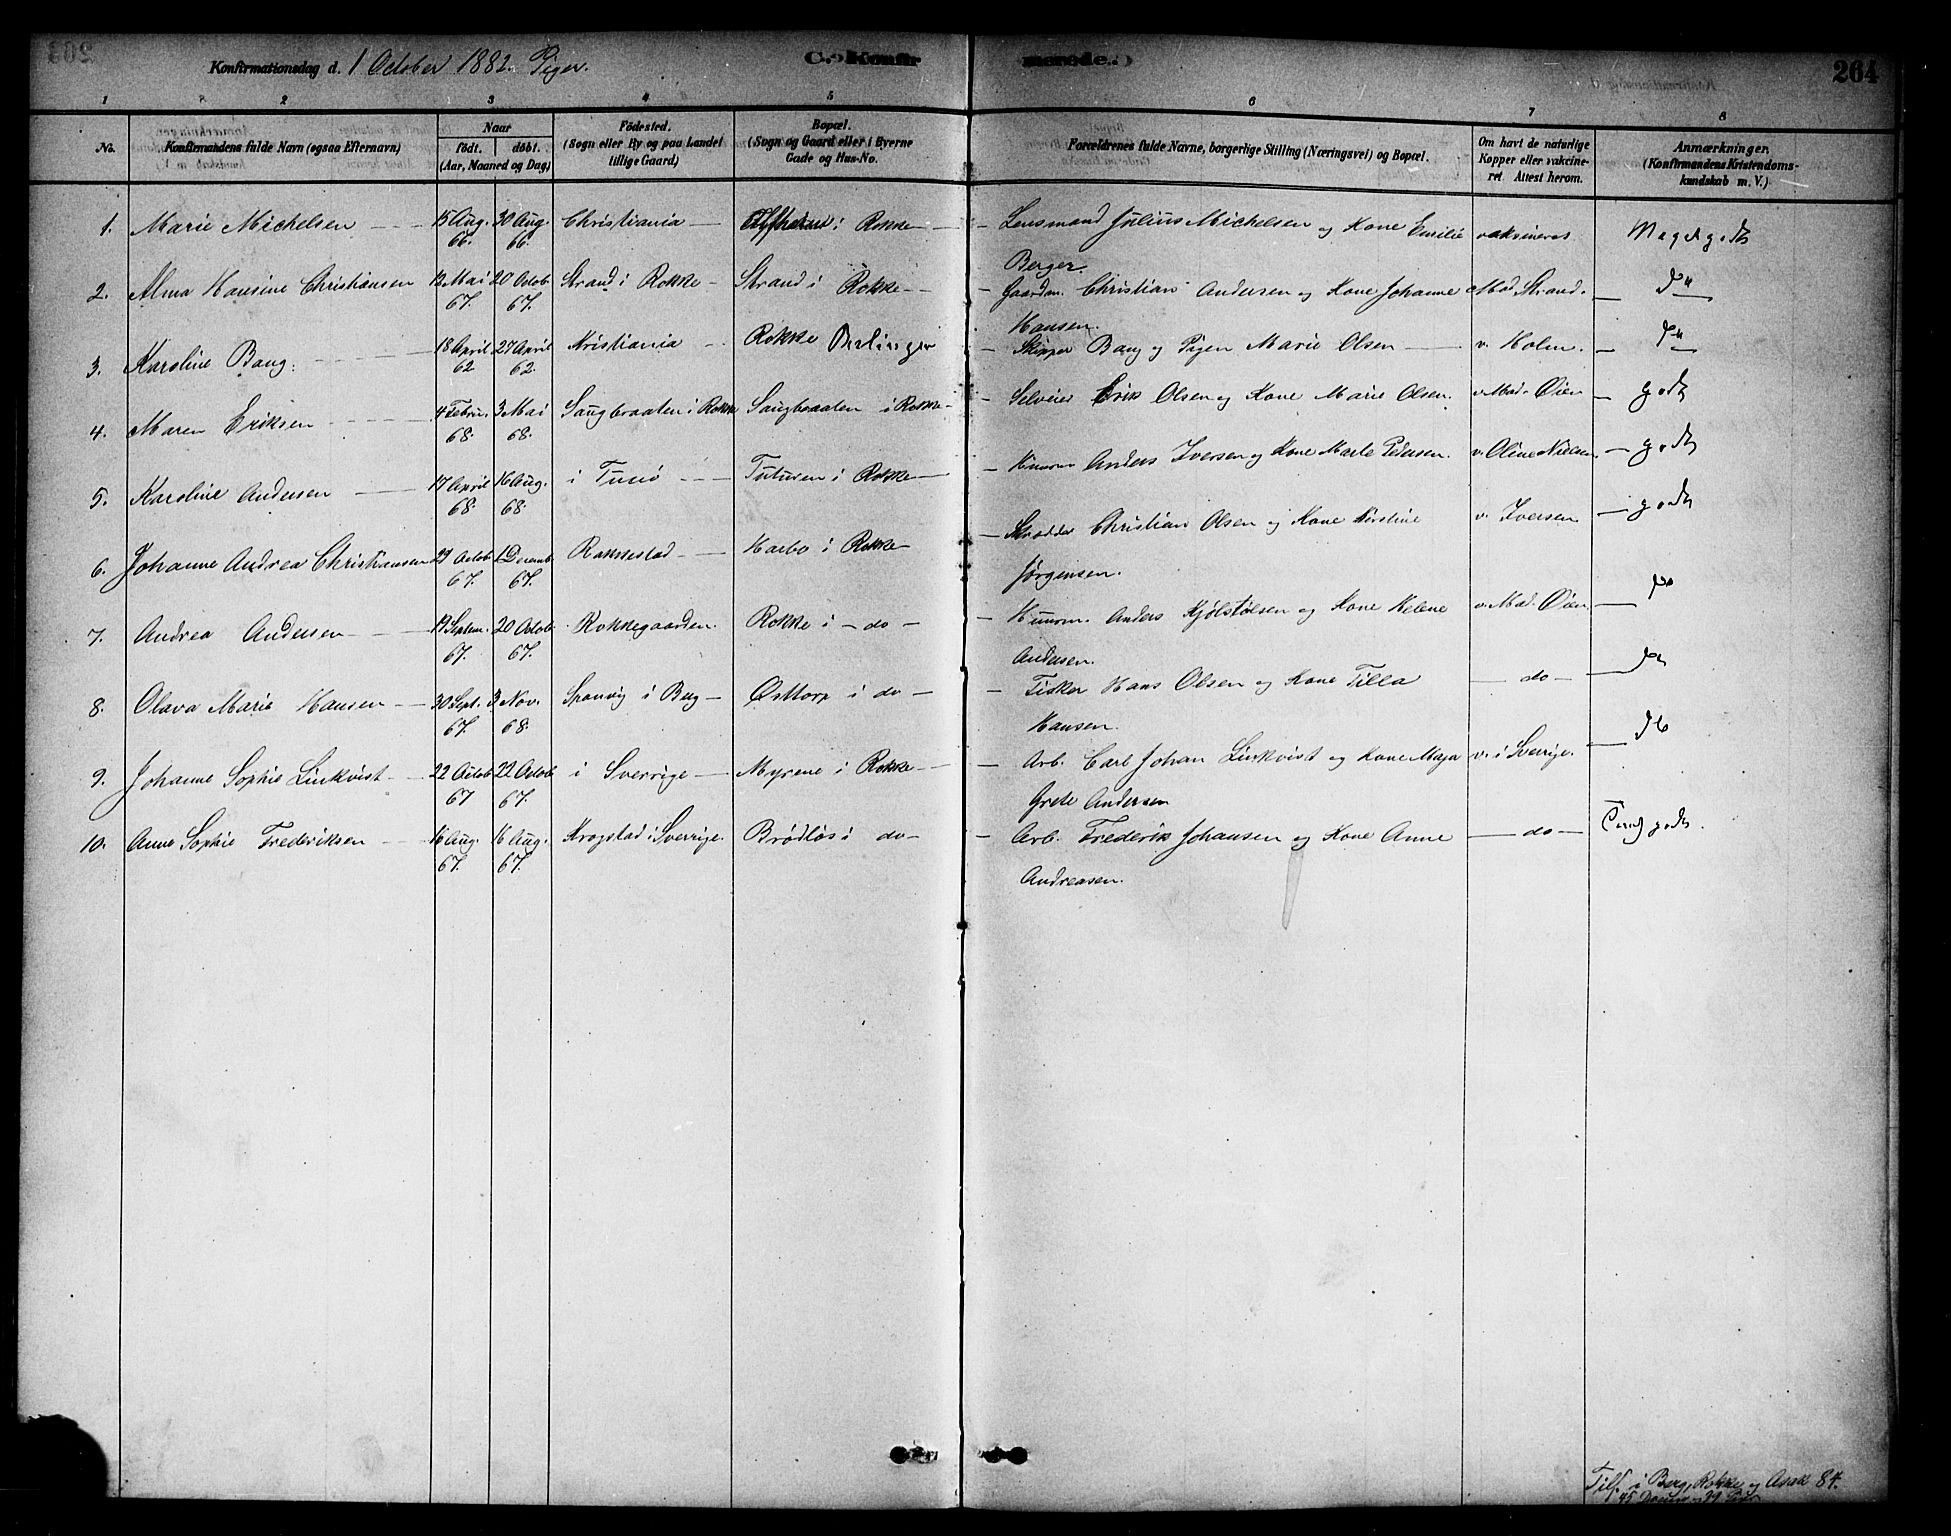 Konfirmationsdag d. 1 October 1882. Piger.
C. Konfirmerede.
264
1 2 3 4 5 6 7 8
No.
Konfirmandens fulde Navn (ogsaa Efternavn)
Naar
født. døbt.
(Aar, Maaned og Dag)
Fødested.
(Sogn eller By og paa Landet tillige Gaard)
Bopæl.
(Sogn og Gaard eller i Byerne Gade og Hus-No.
Forældrenes fulde Navne, borgerlige Stilling (Næringsvei) og Bopæl.
Om havt de naturlige Kopper eller vakcineret. Attest herom.
Anmærkninger.
(Konfirmandens Kristendomskundskab m. V.)
1. Marie Michelsen 15 Aug. 66. 30 Aug. 66. Christiania i Rokke Lensmand Julius Michelsen og Kone Emilie Berger. vaksineret Meget godt
2. Alma Hansine Christiansen 13 Mai 67. 20 Octob 67. Strand i Rokke Strand i Rokke Gaardm. Christian Andersen og Kone Johanne Hansen. Mad. Strand. do
3. Karoline Bang. 18 April 62 27 April 62. Kristiania Rokke Skipper Bang og Pigen Marie Olsen v. Holm. do
4. Maren Eriksen 4 Febru. 68. 3 Mai 68. Saugbraaten i Rokke Saugbraaten i Rokke Selveier Erik Olsen og Kone Marie Olsen. v. Mad. Øien godt
5. Karoline Andersen 17 April 68. 16 Aug. 68. i Rokke Husm. Anders Iversen og Kone Marte Pedersen. v. Oline Nielsen godt
6. Johanne Andrea Christiansen 27 Octob 67. 1 Decemb 67. Rakkestad Harbo i Rokke Skrædder Christian Olsen og Kone Kirstine Jørgensen. v. Iversen godt
7. Andrea Andersen 19 Septem. 67. 20 Octob 67. Rokkegaarden. Rokke i do Husm. Anders Kjølstølsen og Kone Helene Andersen. v. Mad. Øien do
8. Olava Marie Hansen 30 Sept. 67. 3 Nov. 68. Sponvig i Berg Østtorp i do Fisker Hans Olsen og Kone Tilla Hansen. do do
9. Johanne Sophie Linkvist 22 Octob 67 22 Octob 67. i Sverrige Myrene i Rokke Arb. Carl Johan Linkvist og Kone Maja Grete Andersen v. i Sverige. do
10. Anne Sophie Frederiksen 16 Aug. 67. 16 Aug. 67. Krogstad i Sverrige. Brødløs i do Arb. Frederik Johansen og Kone Anne Andreasen. do godt.
Tils. i Berg, Rokke og Asak 84.
45 39